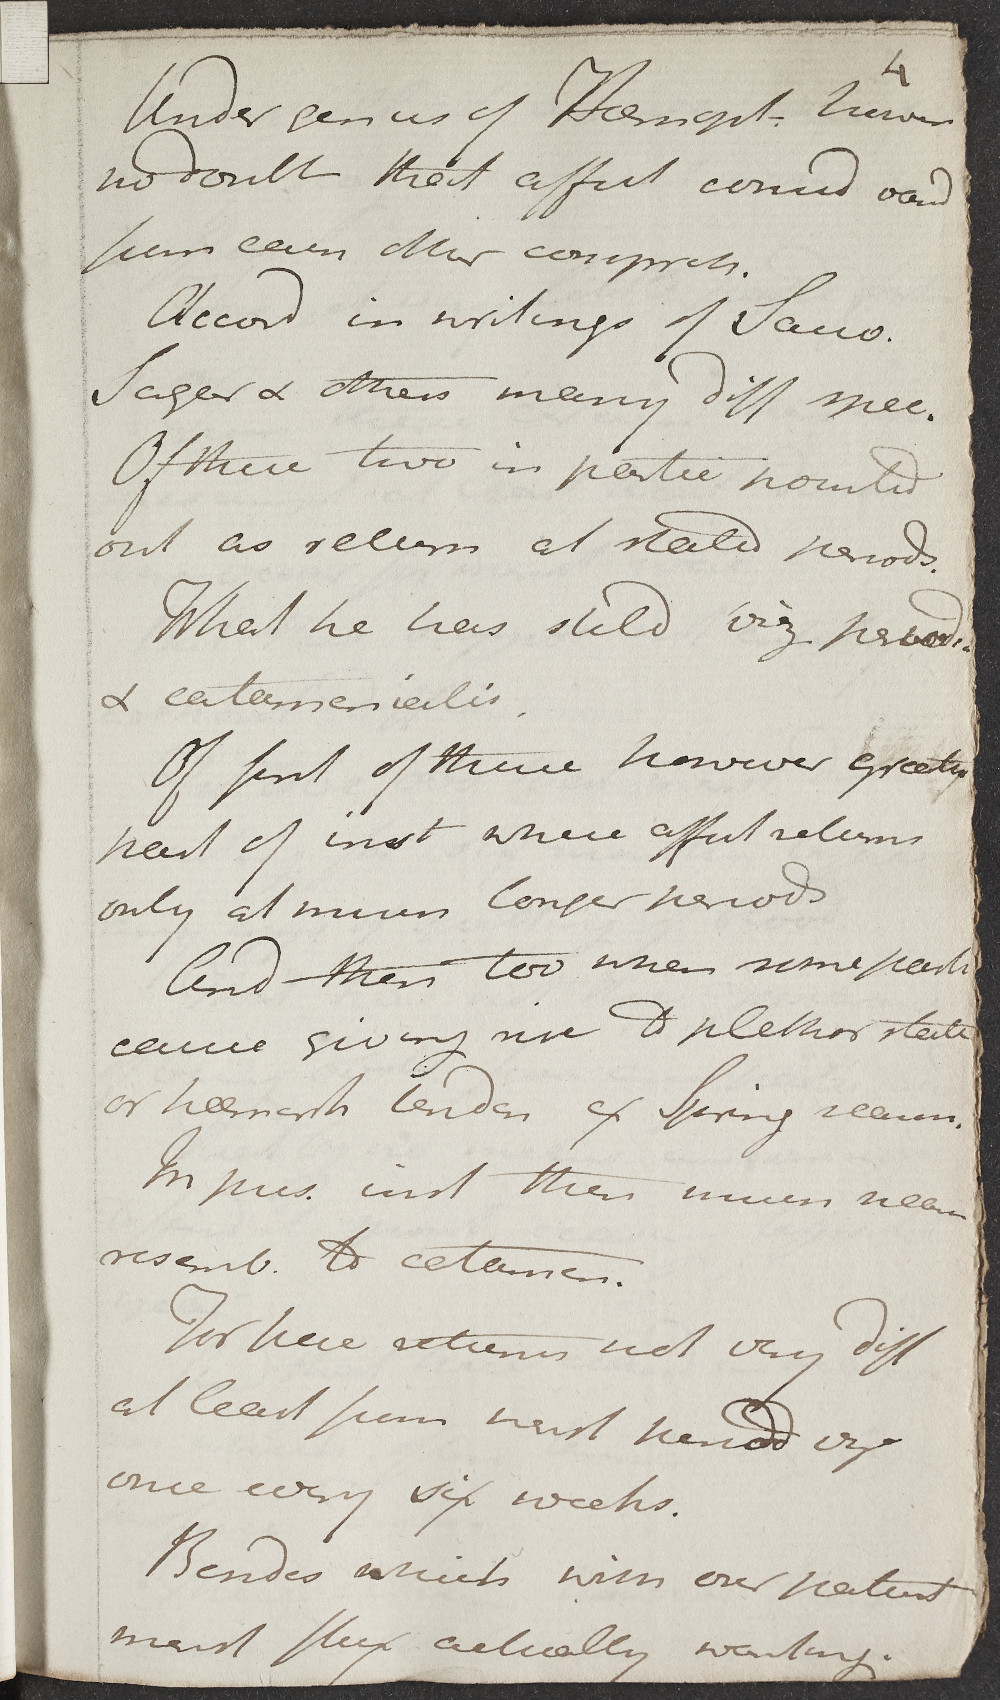 4
Under genus of Hæmopt. however
no doubt that affect connd and
from caus other compreh.
Accord in writings of Sauv.
Sager & others many diff spec.
Of these two in partic pointed
out as return at stated periods.
What he has stild viz period.
& catamenialis.
Of first of these however greater
part of inst where affect returns
only at much longer periods
And then too when some partic
cause giving rise to plethor state
or hæmorrh tenden ex Spring season.
In pres. inst then much nearer
resemb. to catamen.
For here returns not very diff
at least from menst period viz
once every six weeks.
Besides which with our patient
menst flux actually wanting.